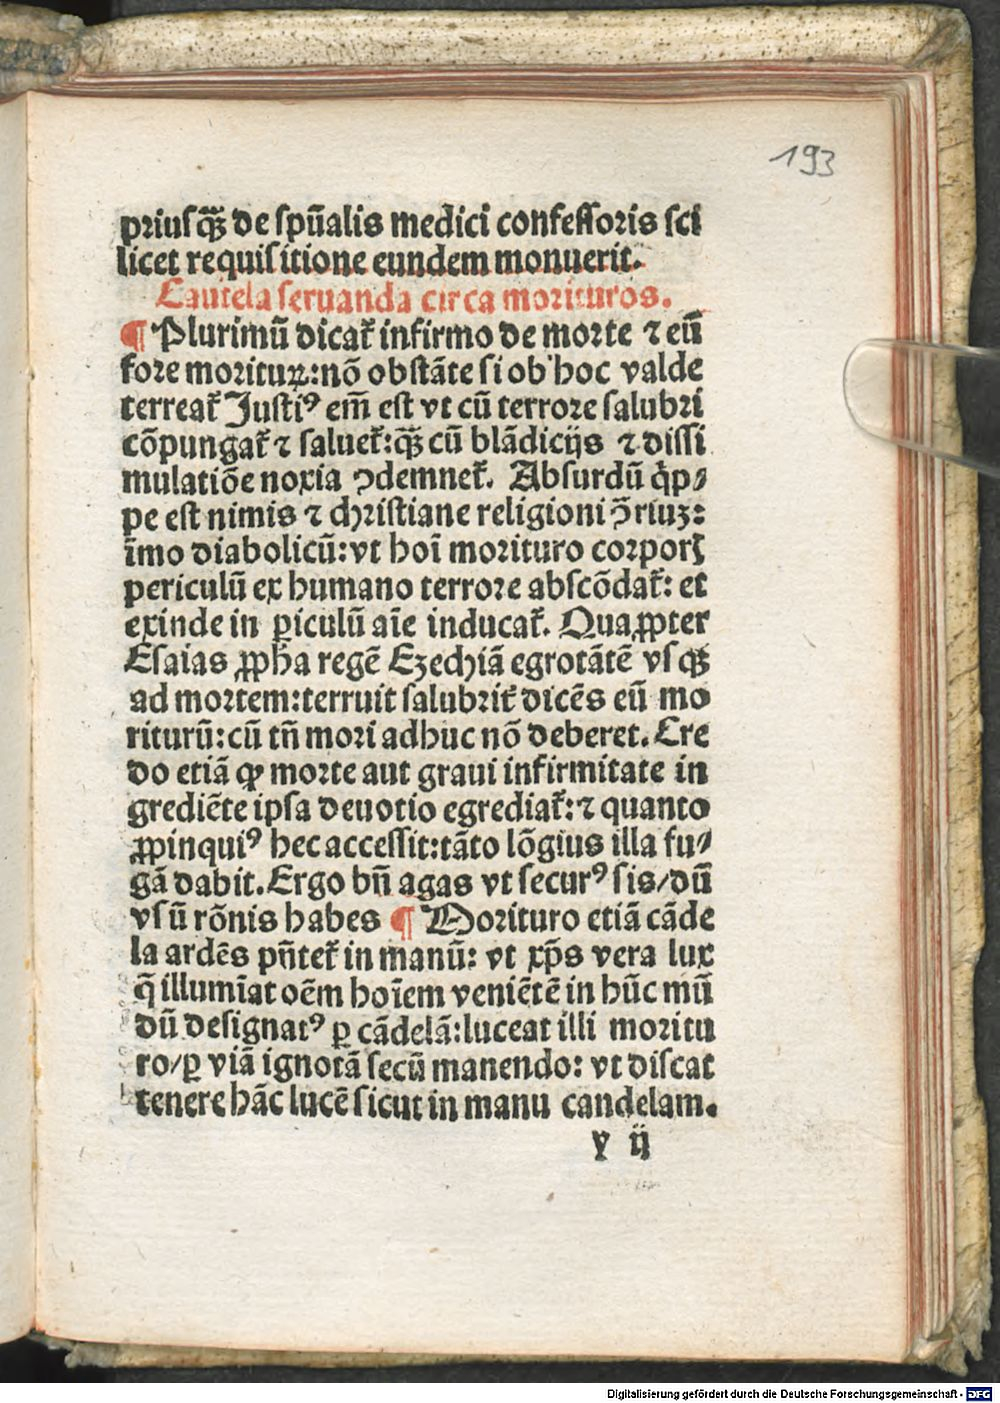 193
priusqꝫ̃ de spũalis medici confessoris sci
licet requisitione eundem monuerit.
Cautela seruanda circa morituros.
¶ Plurimũ dicat᷑ infirmo de morte ⁊ eũ
fore morituꝝ: nõ obstãte si ob hoc valde
terreat᷑ Justiꝰ em̃ est vt cũ terrore salubri
cõpungat᷑ ⁊ saluet᷑: qꝫ̃ cũ blãdicijs ⁊ dissi
mulatiõe noxia ꝯdemnet᷑. Absurdũ q̇p⸗
pe est nimis ⁊ christiane religioni ꝯ̃riuꝫ:
ĩmo diabolicũ: vt hoĩ morituro corporꝭ
periculũ ex humano terrore abscõdat᷑: et
exinde in ꝑiculũ aĩe inducat᷑. Quaꝓpter
Esaias ꝓph̃a regẽ Ezechiã egrotãtẽ vsqꝫ
ad mortem: terruit salubrit᷑ dicẽs eũ mo
riturũ: cũ tñ mori adhuc nõ deberet. Cre
do etiã ꝙ morte aut graui infirmitate in
grediẽte ipsa deuotio egrediat᷑: ⁊ quanto
ꝓpinquiꝰ hec accessit: tãto lõgius illa fu⸗
gã dabit. Ergo bñ agas vt securꝰ sis/dũ
vsũ rõnis habes ¶ Morituro etiã cãde
la ardẽs pñtet᷑ in manũ: vt xp̃s vera lux
q̃ illumĩat oẽm hoĩem veniẽtẽ in hũc mũ
dũ designatꝰ ꝑ cãdelã: luceat illi moritu
ro/ꝑ viã ignotã secũ manendo: vt discat
tenere hãc lucẽ sicut in manu candelam.
y ij
Digitalisierung gefördert durch die Deutsche Forschungsgemeinschaft - DFG